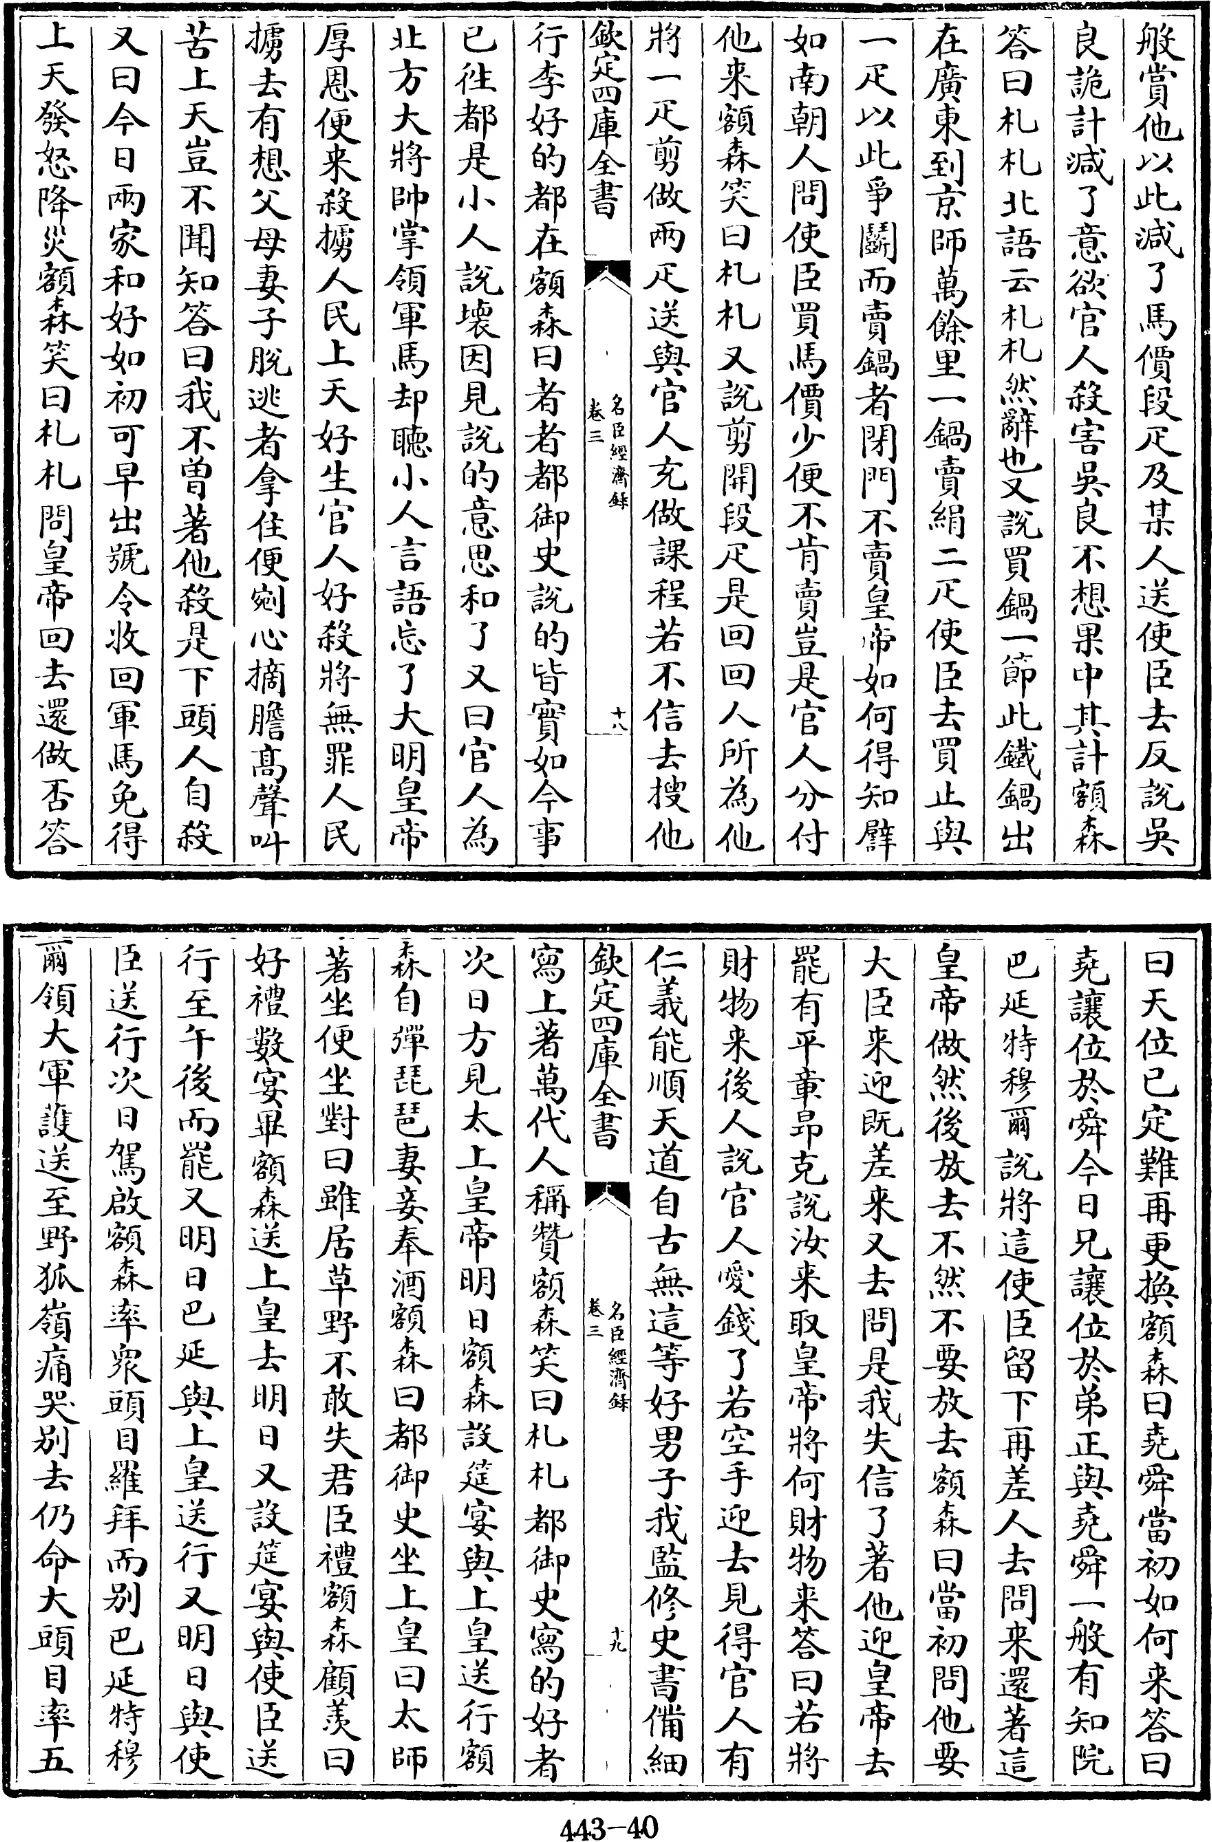 般賞他以此減了馬價段疋及某人送使臣去反說吳
良詭計減了意欲官人殺害吳良不想果中其計額森
答曰札札北語云札札然辭也又說買鍋一節此鐵鍋出
在廣東到京師萬餘里一鍋賣絹二疋使臣去買止與
一疋以此爭鬬而賣鍋者閉門不賣皇帝如何得知譬
如南朝人問使臣買馬價少便不肯賣豈是官人分付
他来額森笑曰札札又說剪開段疋是回回人所為他
將一疋剪做兩疋送與官人充做課程若不信去搜他
欽定四庫全書
名臣經濟錄
卷三
十八
行李好的都在額森曰者者都御史說的皆實如今事
已徃都是小人說壞因見說的意思和了又曰官人為
北方大將帥掌領軍馬却聽小人言語忘了大明皇帝
厚恩便来殺擄人民上天好生官人好殺將無罪人民
擄去有想父母妻子脫逃者拿住便剜心摘膽高聲叫
苦上天豈不聞知答曰我不曾著他殺是下頭人自殺
又曰今日兩家和好如初可早出號令收回軍馬免得
上天發怒降災額森笑曰札札問皇帝回去還做否答
曰天位已定難再更換額森曰堯舜當初如何来答曰
堯讓位於舜今日兄讓位於弟正與堯舜一般有知院
巴延特穆爾說將這使臣留下再差人去問来還著這
皇帝做然後放去不然不要放去額森曰當初問他要
大臣来迎既差来又去問是我失信了著他迎皇帝去
罷有平章昻克說汝来取皇帝將何財物来答曰若將
財物来後人說官人愛錢了若空手迎去見得官人有
仁義能順天道自古無這等好男子我監修史書備細
欽定四庫全書
名臣經濟錄
卷三
十九
寫上著萬代人稱贊額森笑曰札札都御史寫的好者
次日方見太上皇帝明日額森設筵宴與上皇送行額
森自彈琵琶妻妾奉酒額森曰都御史坐上皇曰太師
著坐便坐對曰雖居草野不敢失君臣禮額森顧羨曰
好禮數宴畢額森送上皇去明日又設筵宴與使臣送
行至午後而罷又明日巴延與上皇送行又明日與使
臣送行次日駕啟額森率衆頭目羅拜而别巴延特穆
爾領大軍護送至野狐嶺痛哭别去仍命大頭目率五
443-40